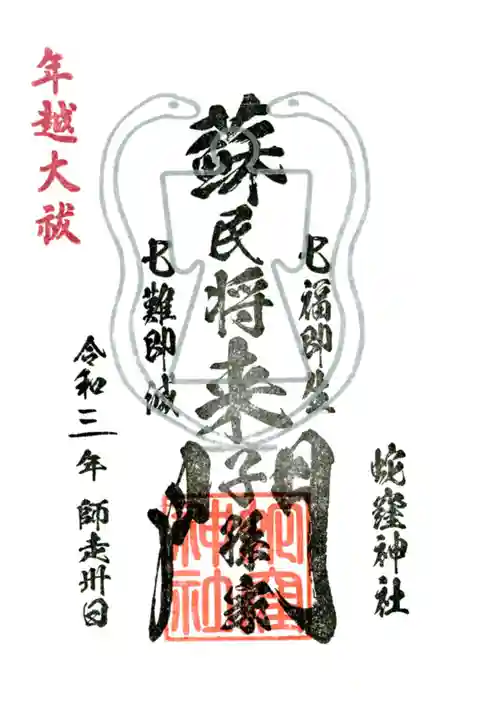 蛇窪神社
七福即生
蘇民将来子孫家門
七難即滅
年越大祓
令和三年 師走卅日
蛇窪
神社